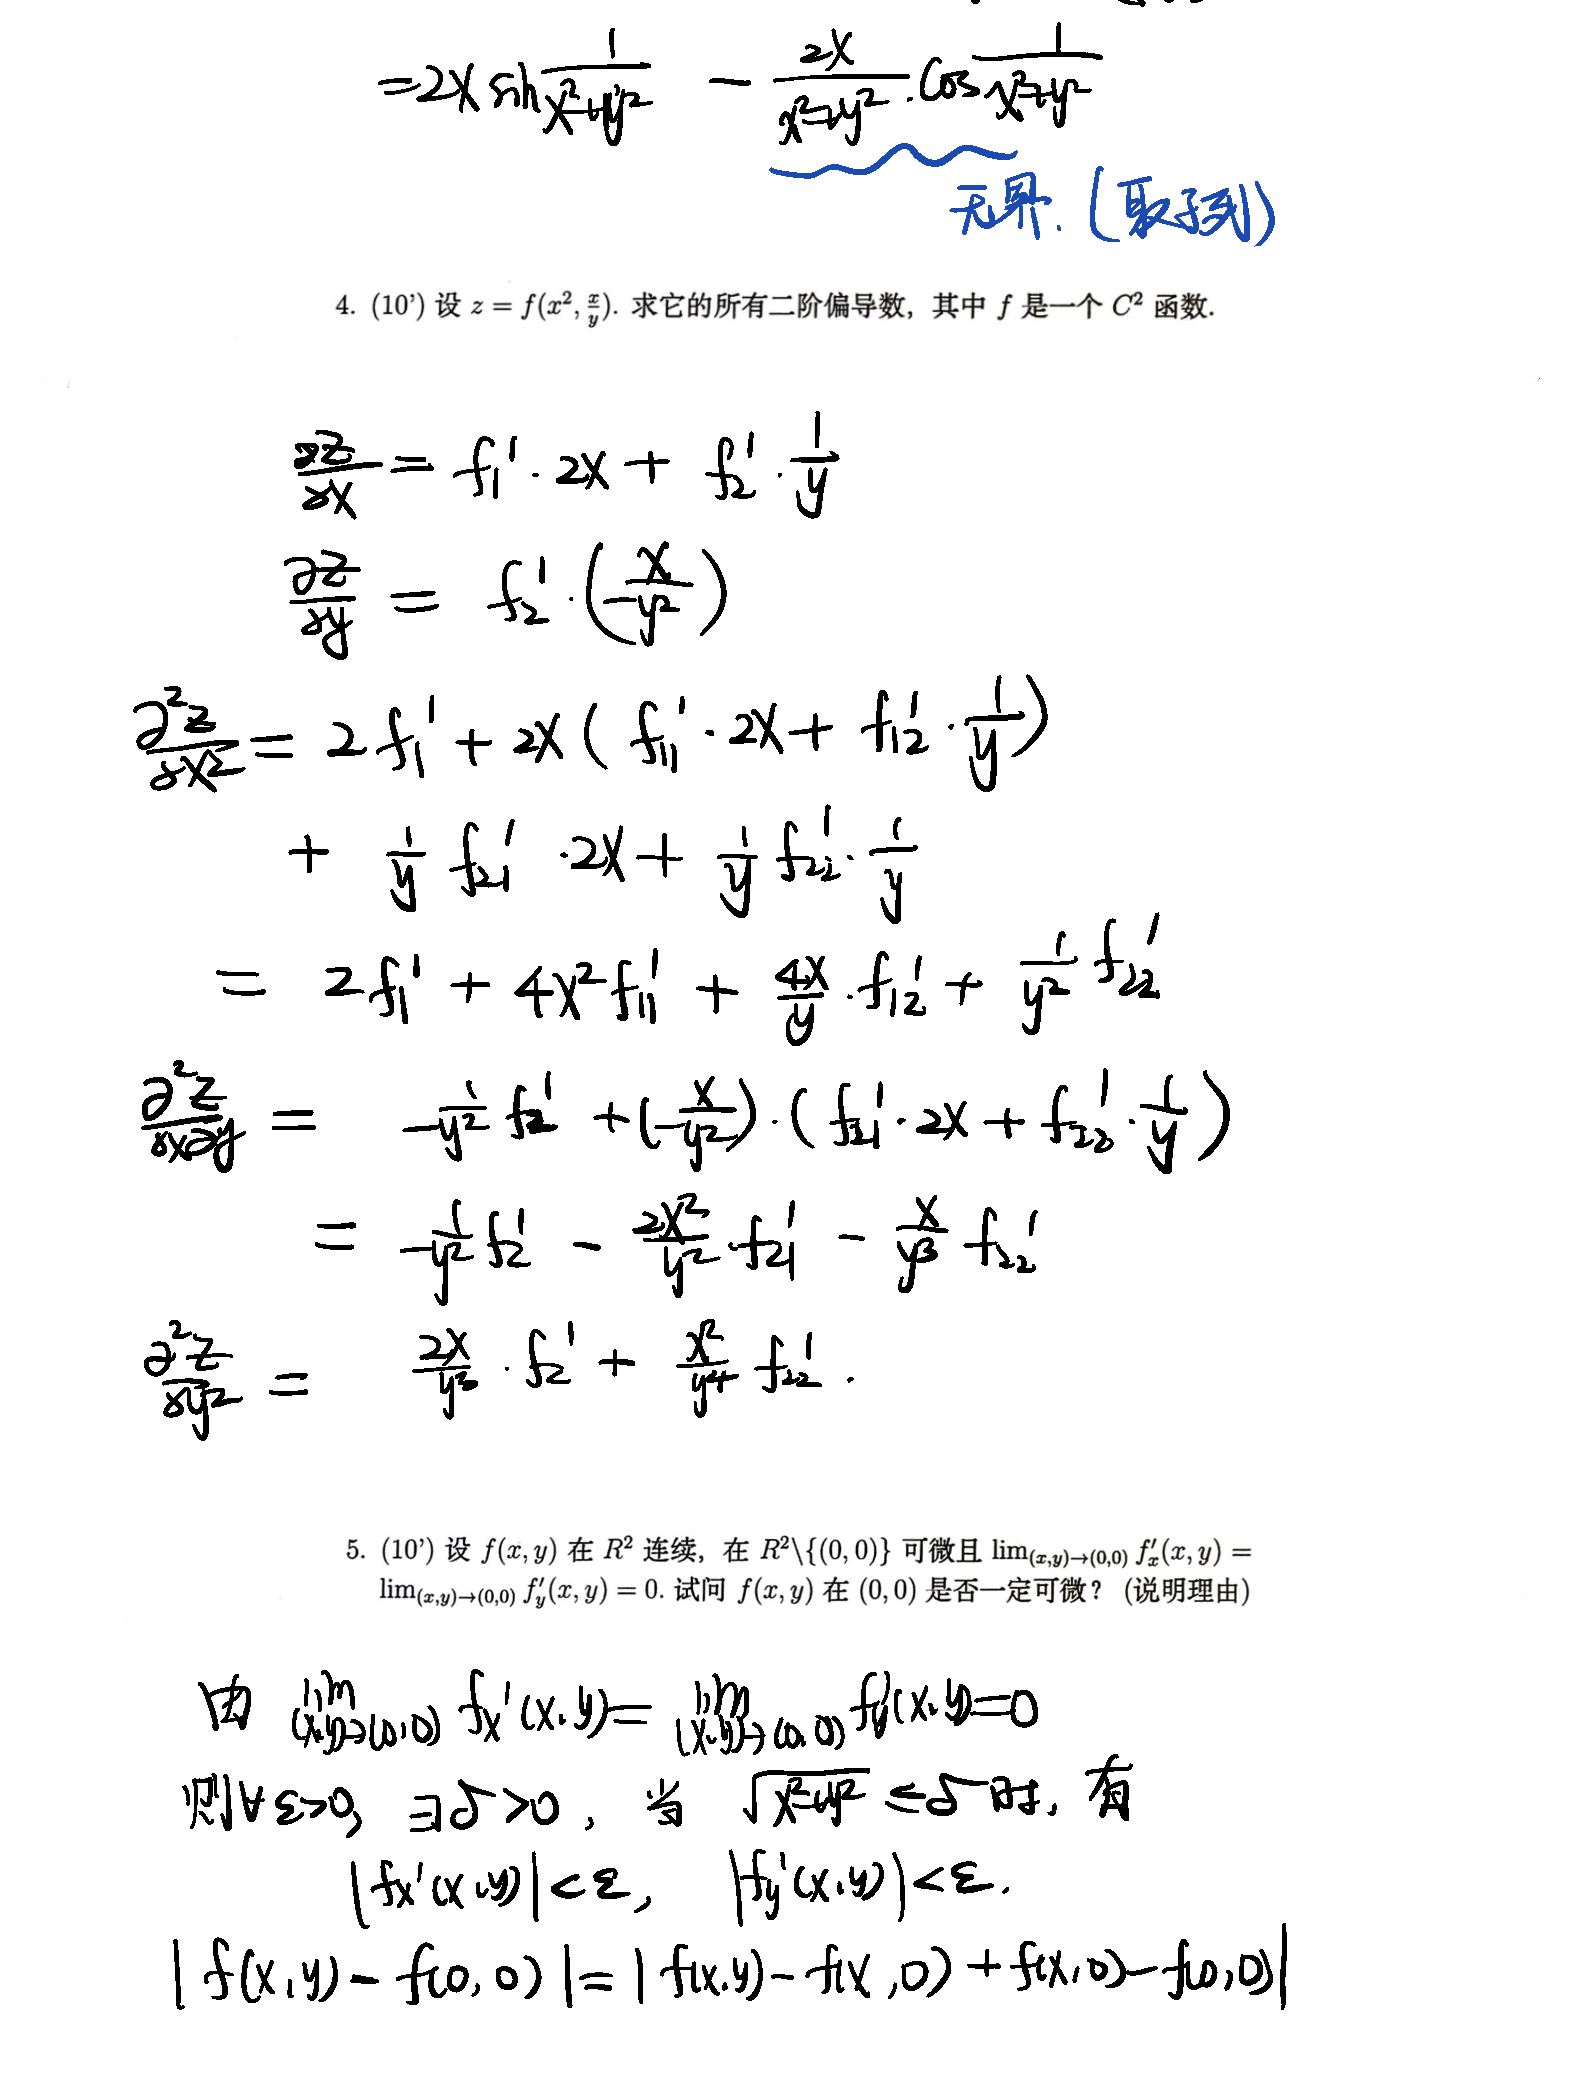 =2x sin 1/(x²+y²) - 2x/(x²+y²) · cos 1/(x²+y²)
无界. (取子列)
4. (10') 设 z = f(x², x/y). 求它的所有二阶偏导数, 其中 f 是一个 C² 函数.
∂z/∂x = f₁' · 2x + f₂' · 1/y
∂z/∂y = f₂' · (-x/y²)
∂²z/∂x² = 2f₁' + 2x ( f₁₁' · 2x + f₁₂' · 1/y )
+ 1/y f₂₁' · 2x + 1/y f₂₂' · 1/y
= 2f₁' + 4x² f₁₁' + 4x/y · f₁₂' + 1/y² f₂₂'
∂²z/∂x∂y = -1/y² f₂' + (-x/y²) · ( f₂₁' · 2x + f₂₂' · 1/y )
= -1/y² f₂' - 2x²/y² · f₂₁' - x/y³ f₂₂'
∂²z/∂y² = 2x/y³ · f₂' + x²/y⁴ f₂₂' .
5. (10') 设 f(x, y) 在 R² 连续, 在 R²\{(0, 0)} 可微且 lim(x,y)→(0,0) f'ₓ(x, y) =
lim(x,y)→(0,0) f'y(x, y) = 0. 试问 f(x, y) 在 (0, 0) 是否一定可微? (说明理由)
由 lim(x,y)→(0,0) fx'(x,y) = lim(x,y)→(0,0) fy'(x,y) = 0
则∀ε>0, ∃δ>0, 当 √(x²+y²) ≤ δ 时, 有
|fx'(x,y)| < ε, |fy'(x,y)| < ε.
| f(x,y) - f(0,0) | = | f(x,y) - f(x,0) + f(x,0) - f(0,0) |